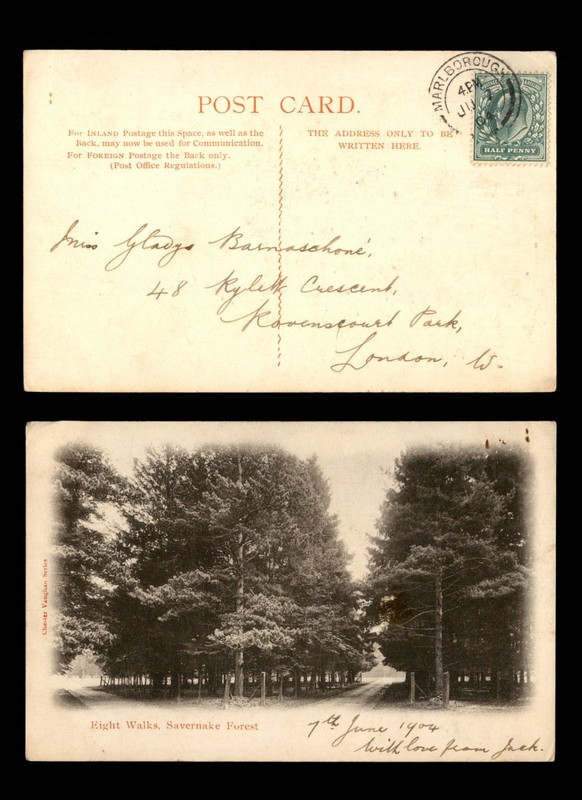 POST CARD.
For INLAND Postage this Space, as well as the
Back, may now be used for Communication.
For FOREIGN Postage the Back only.
(Post Office Regulations.)
THE ADDRESS ONLY TO BE
WRITTEN HERE.
MARLBOROUGH
4 PM
JU
HALF PENNY
Miss Gladys Barnaschoné,
48 Rylett Crescent,
Ravenscourt Park,
London, W.
Chester Vaughan Series
Eight Walks, Savernake Forest
7th June 1904
With love from Jack.